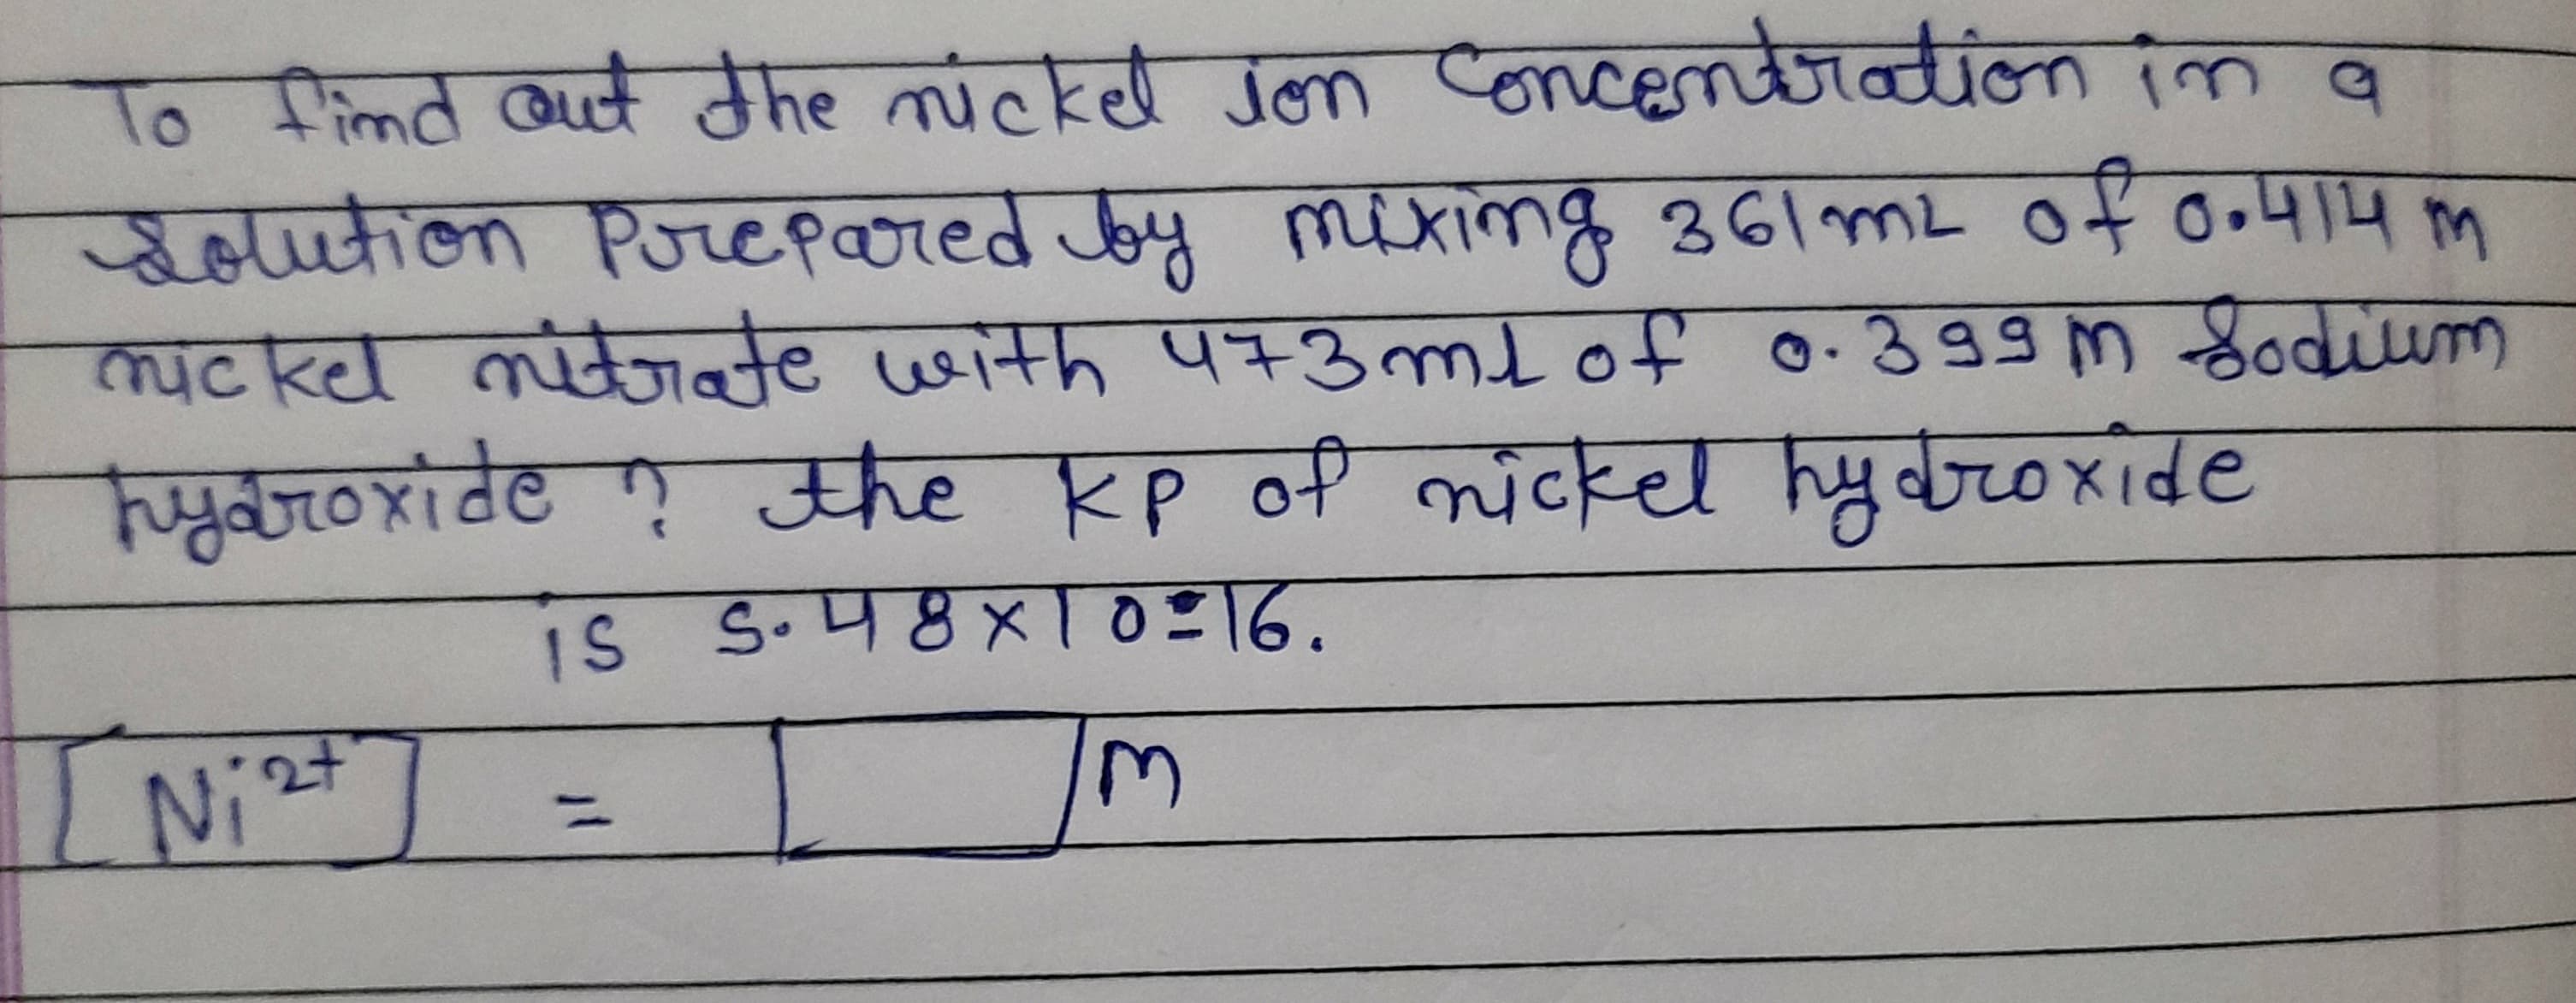 To find out the nickel ion Concentration in a
Solution Prepared by mixing 361 mL of 0.414 m
nickel nitrate with 473 ml of 0.399 m Sodium
hydroxide? the KP of nickel hydroxide
is 5.48 x 10=16.
[Ni²⁺] = m